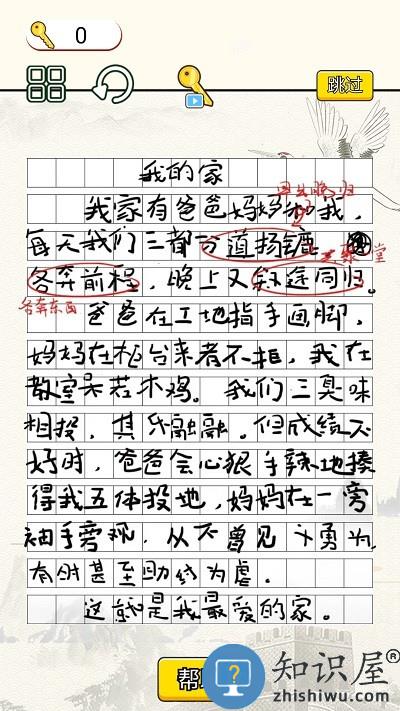 0
跳过
我的家
我家有爸爸妈妈和我，
每天我们三都分道扬镳，
各奔前程，晚上又殊途同归。
各奔东西
爸爸在工地指手画脚，
妈妈在柜台来者不拒，我在
教室呆若木鸡。我们三臭味
相投，其乐融融。但成绩不
好时，爸爸会心狠手辣地揍
得我五体投地，妈妈在一旁
袖手旁观，从不曾见义勇为，
有时甚至助纣为虐。
这就是我最爱的家。
帮
知识屋®
zhishiwu.com